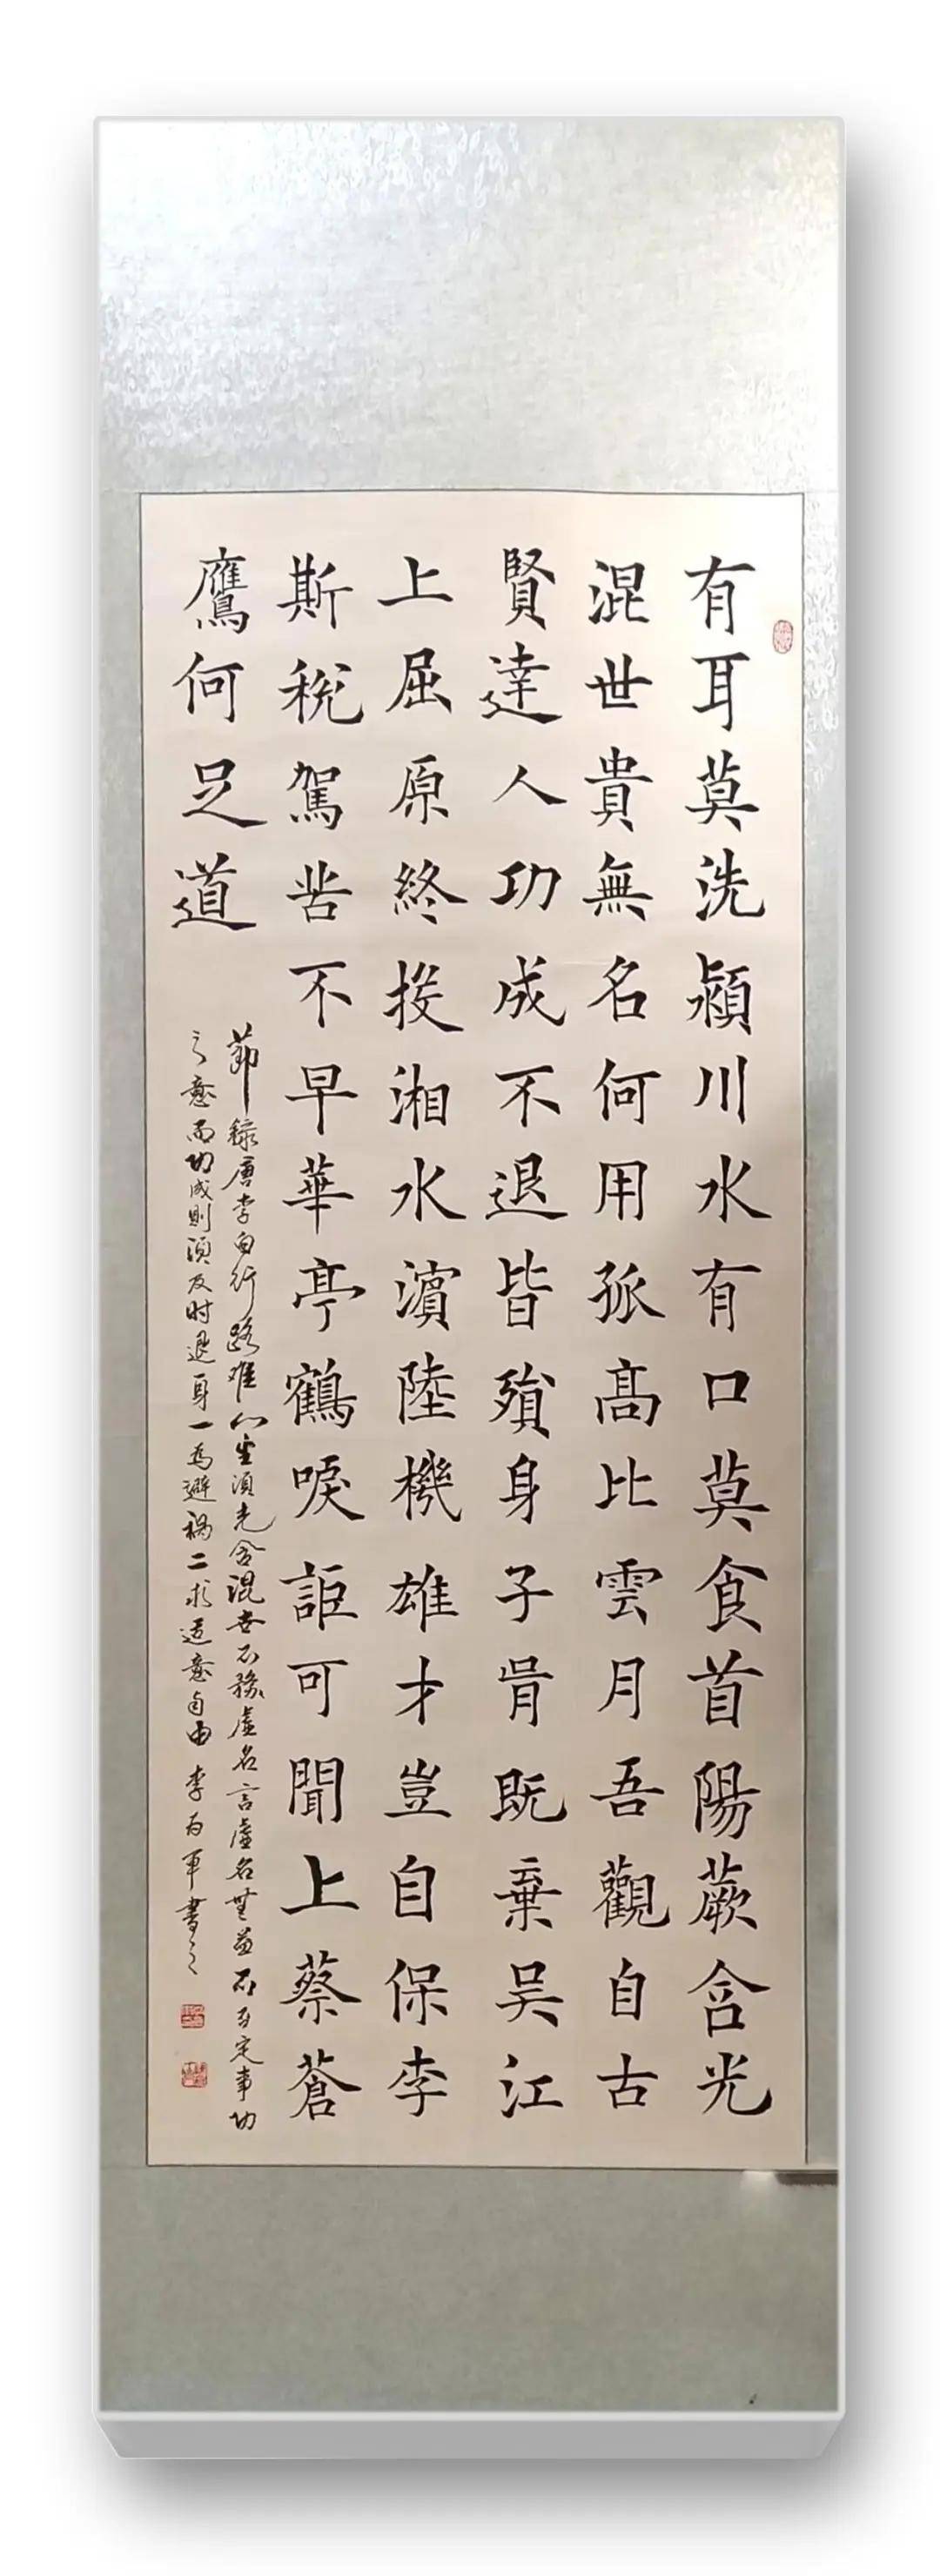 有耳莫洗潁川水有口莫食首陽蕨含光
混世貴無名何用孤高比雲月吾觀自古
賢達人功成不退皆殞身子胥既棄吴江
上屈原終投湘水濵陸機雄才豈自保李
斯稅駕苦不早華亭鶴唳詎可聞上蔡蒼
鷹何足道
節録唐李白行路难心里須先含混世不務虚名言虚名無益不可定事功
之意而功成則須及时退身一為避禍二求适意自由 李为军書之